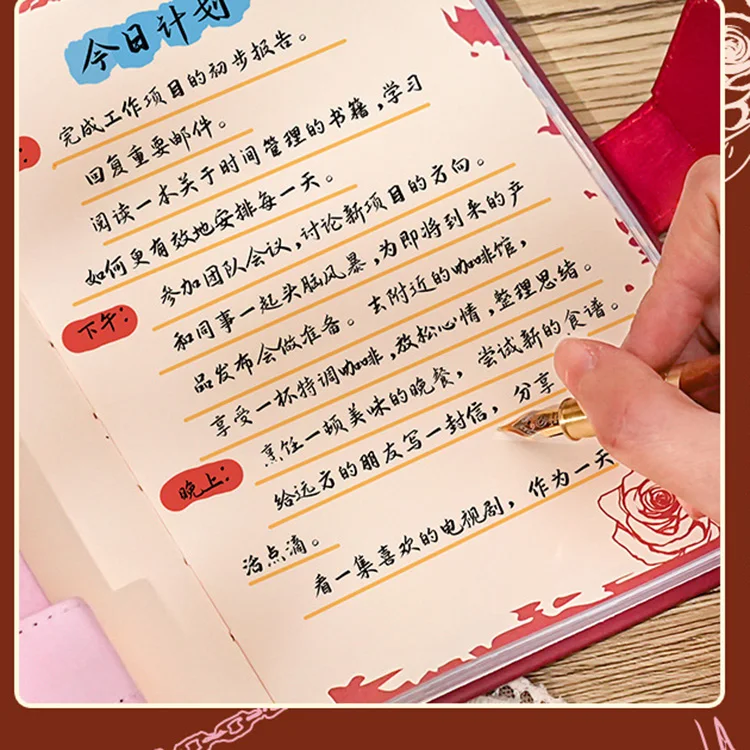 今日计划
完成工作项目的初步报告。
回复重要邮件。
阅读一本关于时间管理的书籍，学习
如何更有效地安排每一天。
下午：
参加团队会议，讨论新项目的方向。
和同事一起头脑风暴，为即将到来的产
品发布会做准备。去附近的咖啡馆，
享受一杯特调咖啡，放松心情，整理思绪。
晚上：
烹饪一顿美味的晚餐，尝试新的食谱。
给远方的朋友写一封信，分享
活点滴。
看一集喜欢的电视剧，作为一天